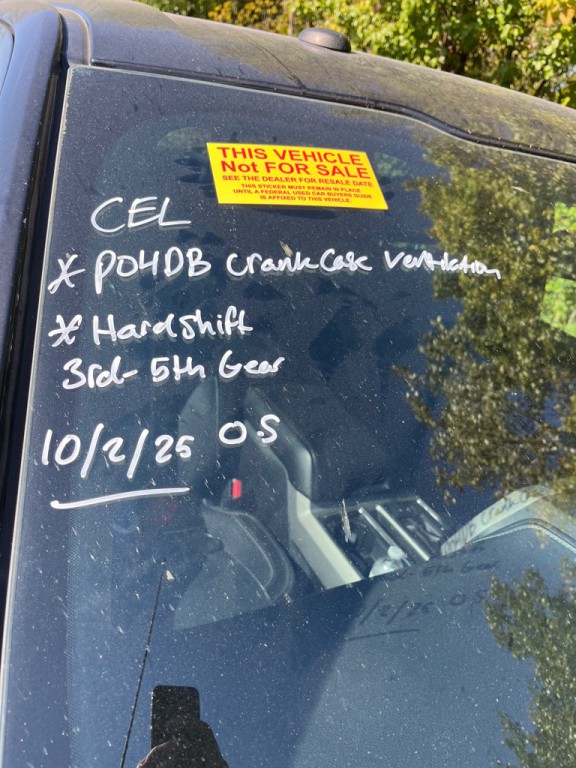 THIS VEHICLE
Not FOR SALE
SEE THE DEALER FOR RESALE DATE
THIS STICKER MUST REMAIN IN PLACE
UNTIL A FEDERAL USED CAR BUYERS GUIDE
IS AFFIXED TO THIS VEHICLE.
CEL
* P04DB Crankcase ventilation
* Hardshift
3rd- 5th Gear
10/2/25 O.S